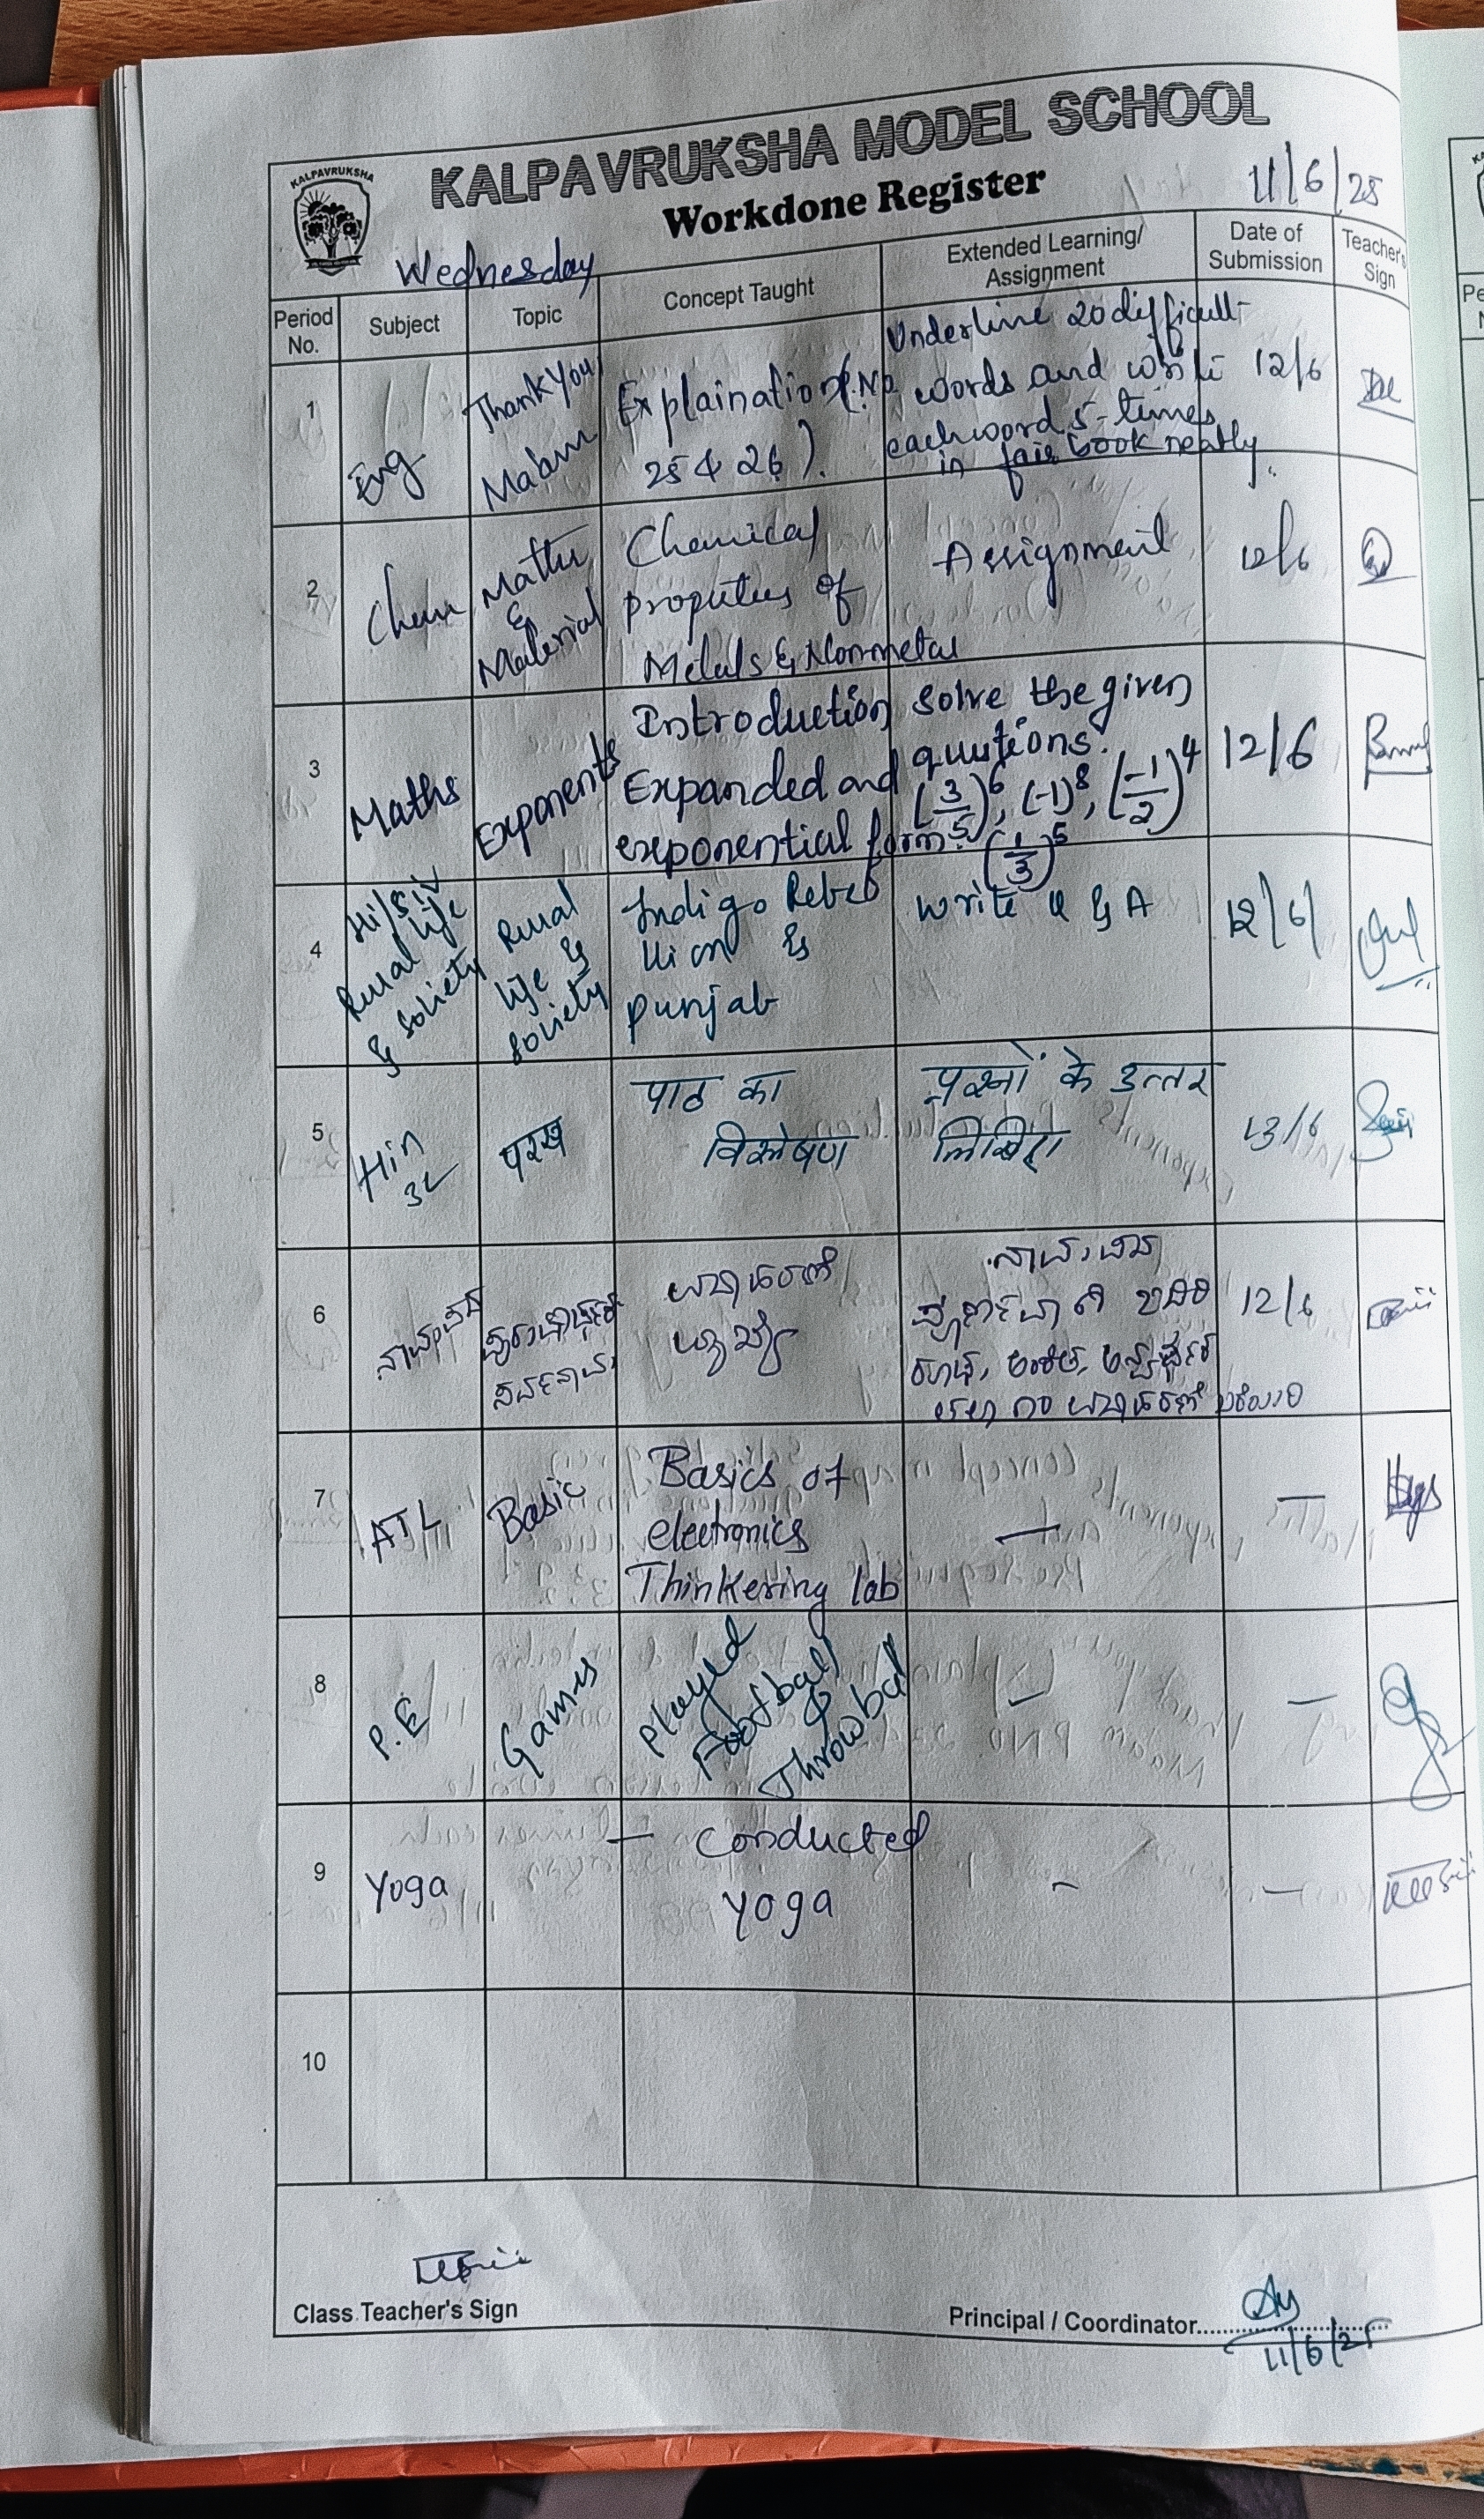 KALPAVRUKSHA
KALPAVRUKSHA MODEL SCHOOL
Workdone Register
11/6/25
Wednesday
Period No.
Subject
Topic
Concept Taught
Extended Learning/
Assignment
Date of
Submission
Teacher's
Sign
1
Eng
Thank You
Ma'am
Explaination (P.No
25 & 26).
Underline 20 difficult
words and write
each word 5-times
in fair book neatly.
12/6
2
Chem
Matter
&
Material
Chemical
properties of
Metals & Nonmetal
Assignment
12/6
3
Maths
Exponents
Introduction
Expanded and
exponential form.
Solve the given
quutions.
(3/5)^6, (-1)^8, (-1/2)^4
(1/3)^5
12/6
4
Rural life
& society
Rural
life &
society
Indigo Rebel
lion &
punjab
Write Q & A
12/6
5
Hin
3L
परख
पाठ का
विश्लेषण
प्रश्नों के उत्तर
लिखिए
13/6
6
12/6
7
ATL
Basic
Basics of
electronics
Thinkering lab
—
—
8
P.E
Games
Played
Football
&
Throwball
—
—
9
Yoga
— Conducted
Yoga
-
—
10
Class Teacher's Sign
Principal / Coordinator
11/6/25